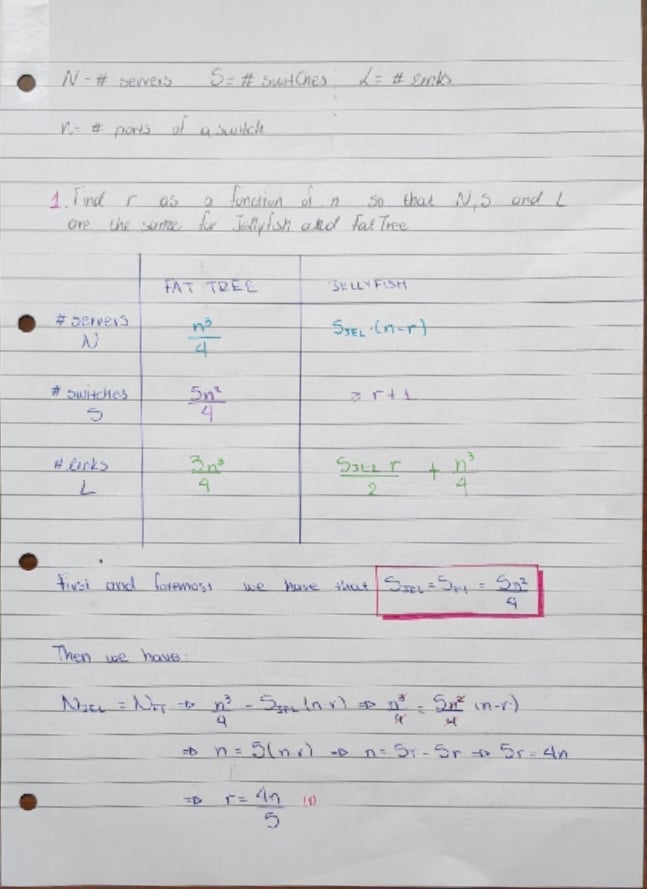 N - # servers S = # switches L = # links
n = # ports of a switch
1. Find r as a function of n so that N, S and L
are the same for Jellyfish and Fat Tree
FAT TREE JELLYFISH
# servers N n³/4 S_JEL · (n-r)
# switches S 5n²/4 ≥ r+1
# links L 3n³/4 S_JEL r/2 + n³/4
First and foremost we have that S_JEL = S_FT = 5n²/4
Then we have:
N_JEL = N_FT ⇒ n³/4 = S_JEL (n-r) ⇒ n³/4 = 5n²/4 (n-r)
⇒ n = 5(n-r) ⇒ n = 5r - 5r ⇒ 5r = 4n
⇒ r = 4n/5 (1)